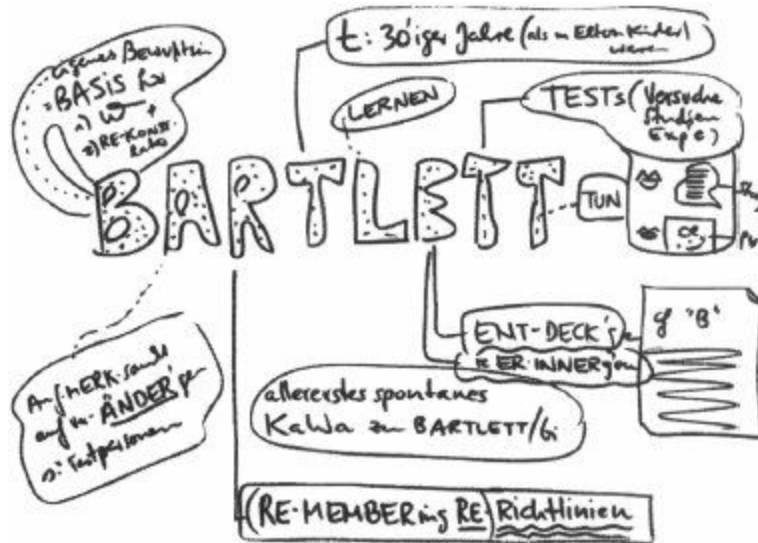 t: 30'iger Jahre (als m Eltern Kinder
waren
eigenes
= BASIS für
1) W +
2) RE-KONST-
LERNEN
TESTs (Versuche
Studien
Exp e)
BARTLETT
TUN
ENT-DECK'g
ER-INNER'gen
gl "B"
Auf-MERK-samk
auf ver-ÄNDER'gen
Testpersonen
allererstes spontanes
KaWa zu BARTLETT/
(RE-MEMBERing RE-) Richtlinien